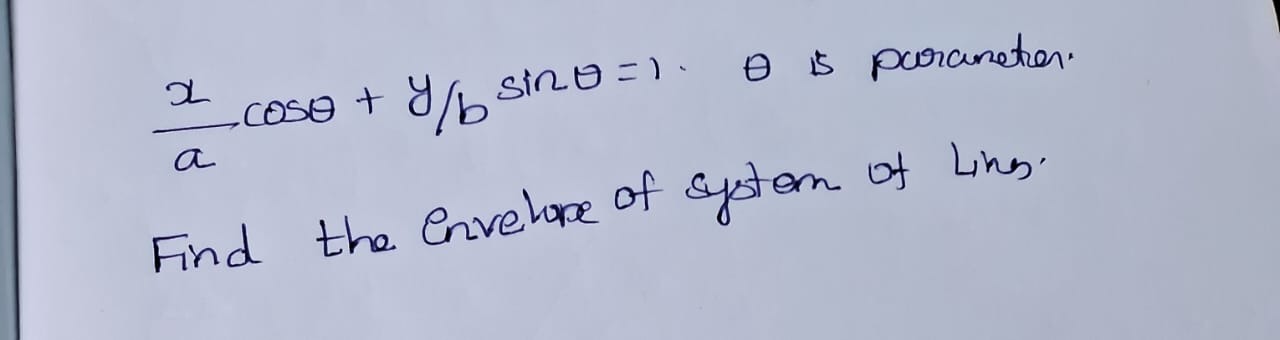 x/a cosθ + y/b sinθ = 1. θ is parameter.
Find the Envelope of system of Lines.